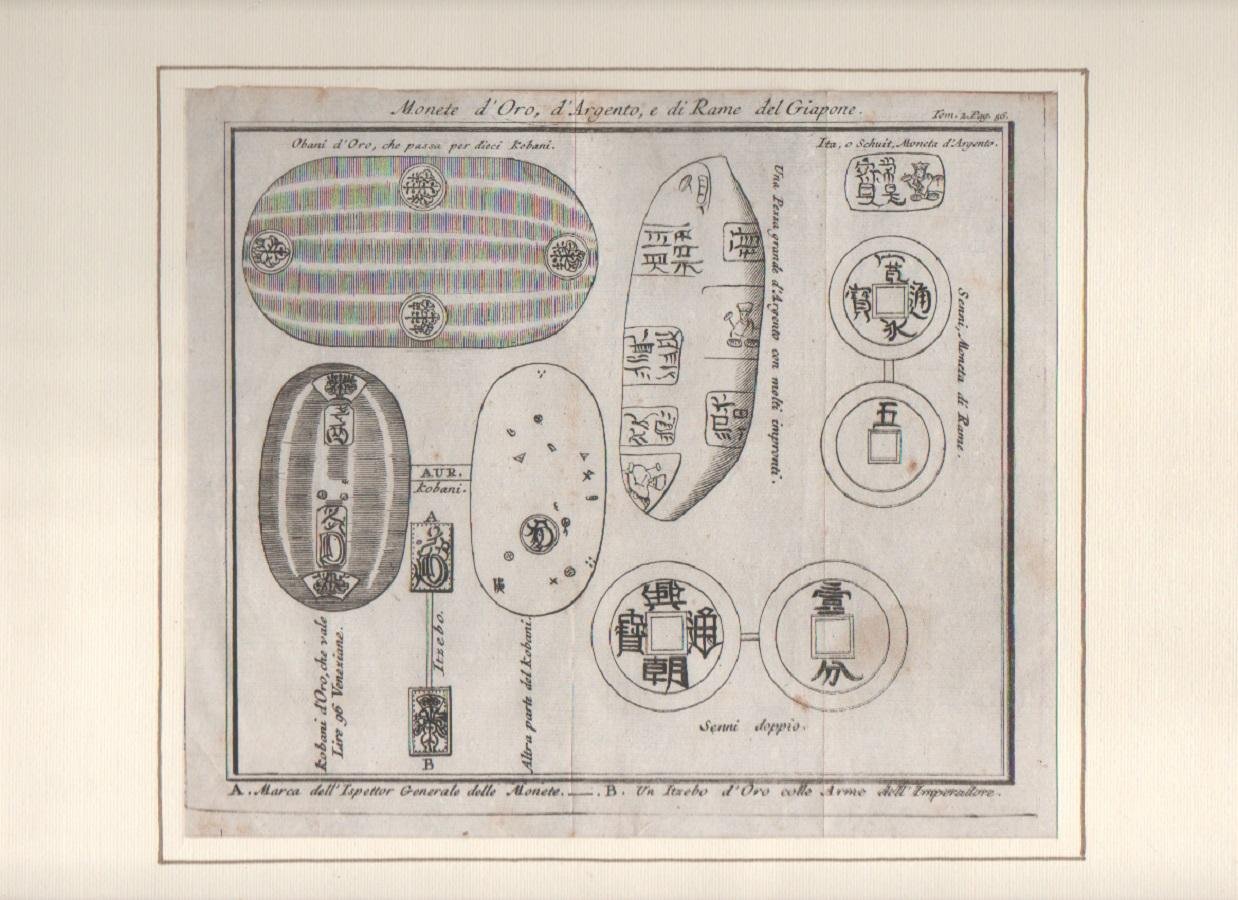 Monete d'Oro, d'Argento, e di Rame del Giapone.
Tom. 2. Pag. 56.
Obani d'Oro, che passa per dieci Kobani.
Ita, o Schuit, Moneta d'Argento.
Una Pezza grande d'Argento con molti impronti.
寬永通寳
Senni, Moneta di Rame.
五
AUR.
Kobani.
A
Itzebo.
B
Kobani d'Oro, che vale
Lire 96 Veneziane.
Altra parte del Kobani.
興朝通寶
壹分
Senni doppio.
A. Marca dell'Ispettor Generale delle Monete. __. B. Un Itzebo d'Oro colle Arme dell'Imperattore.